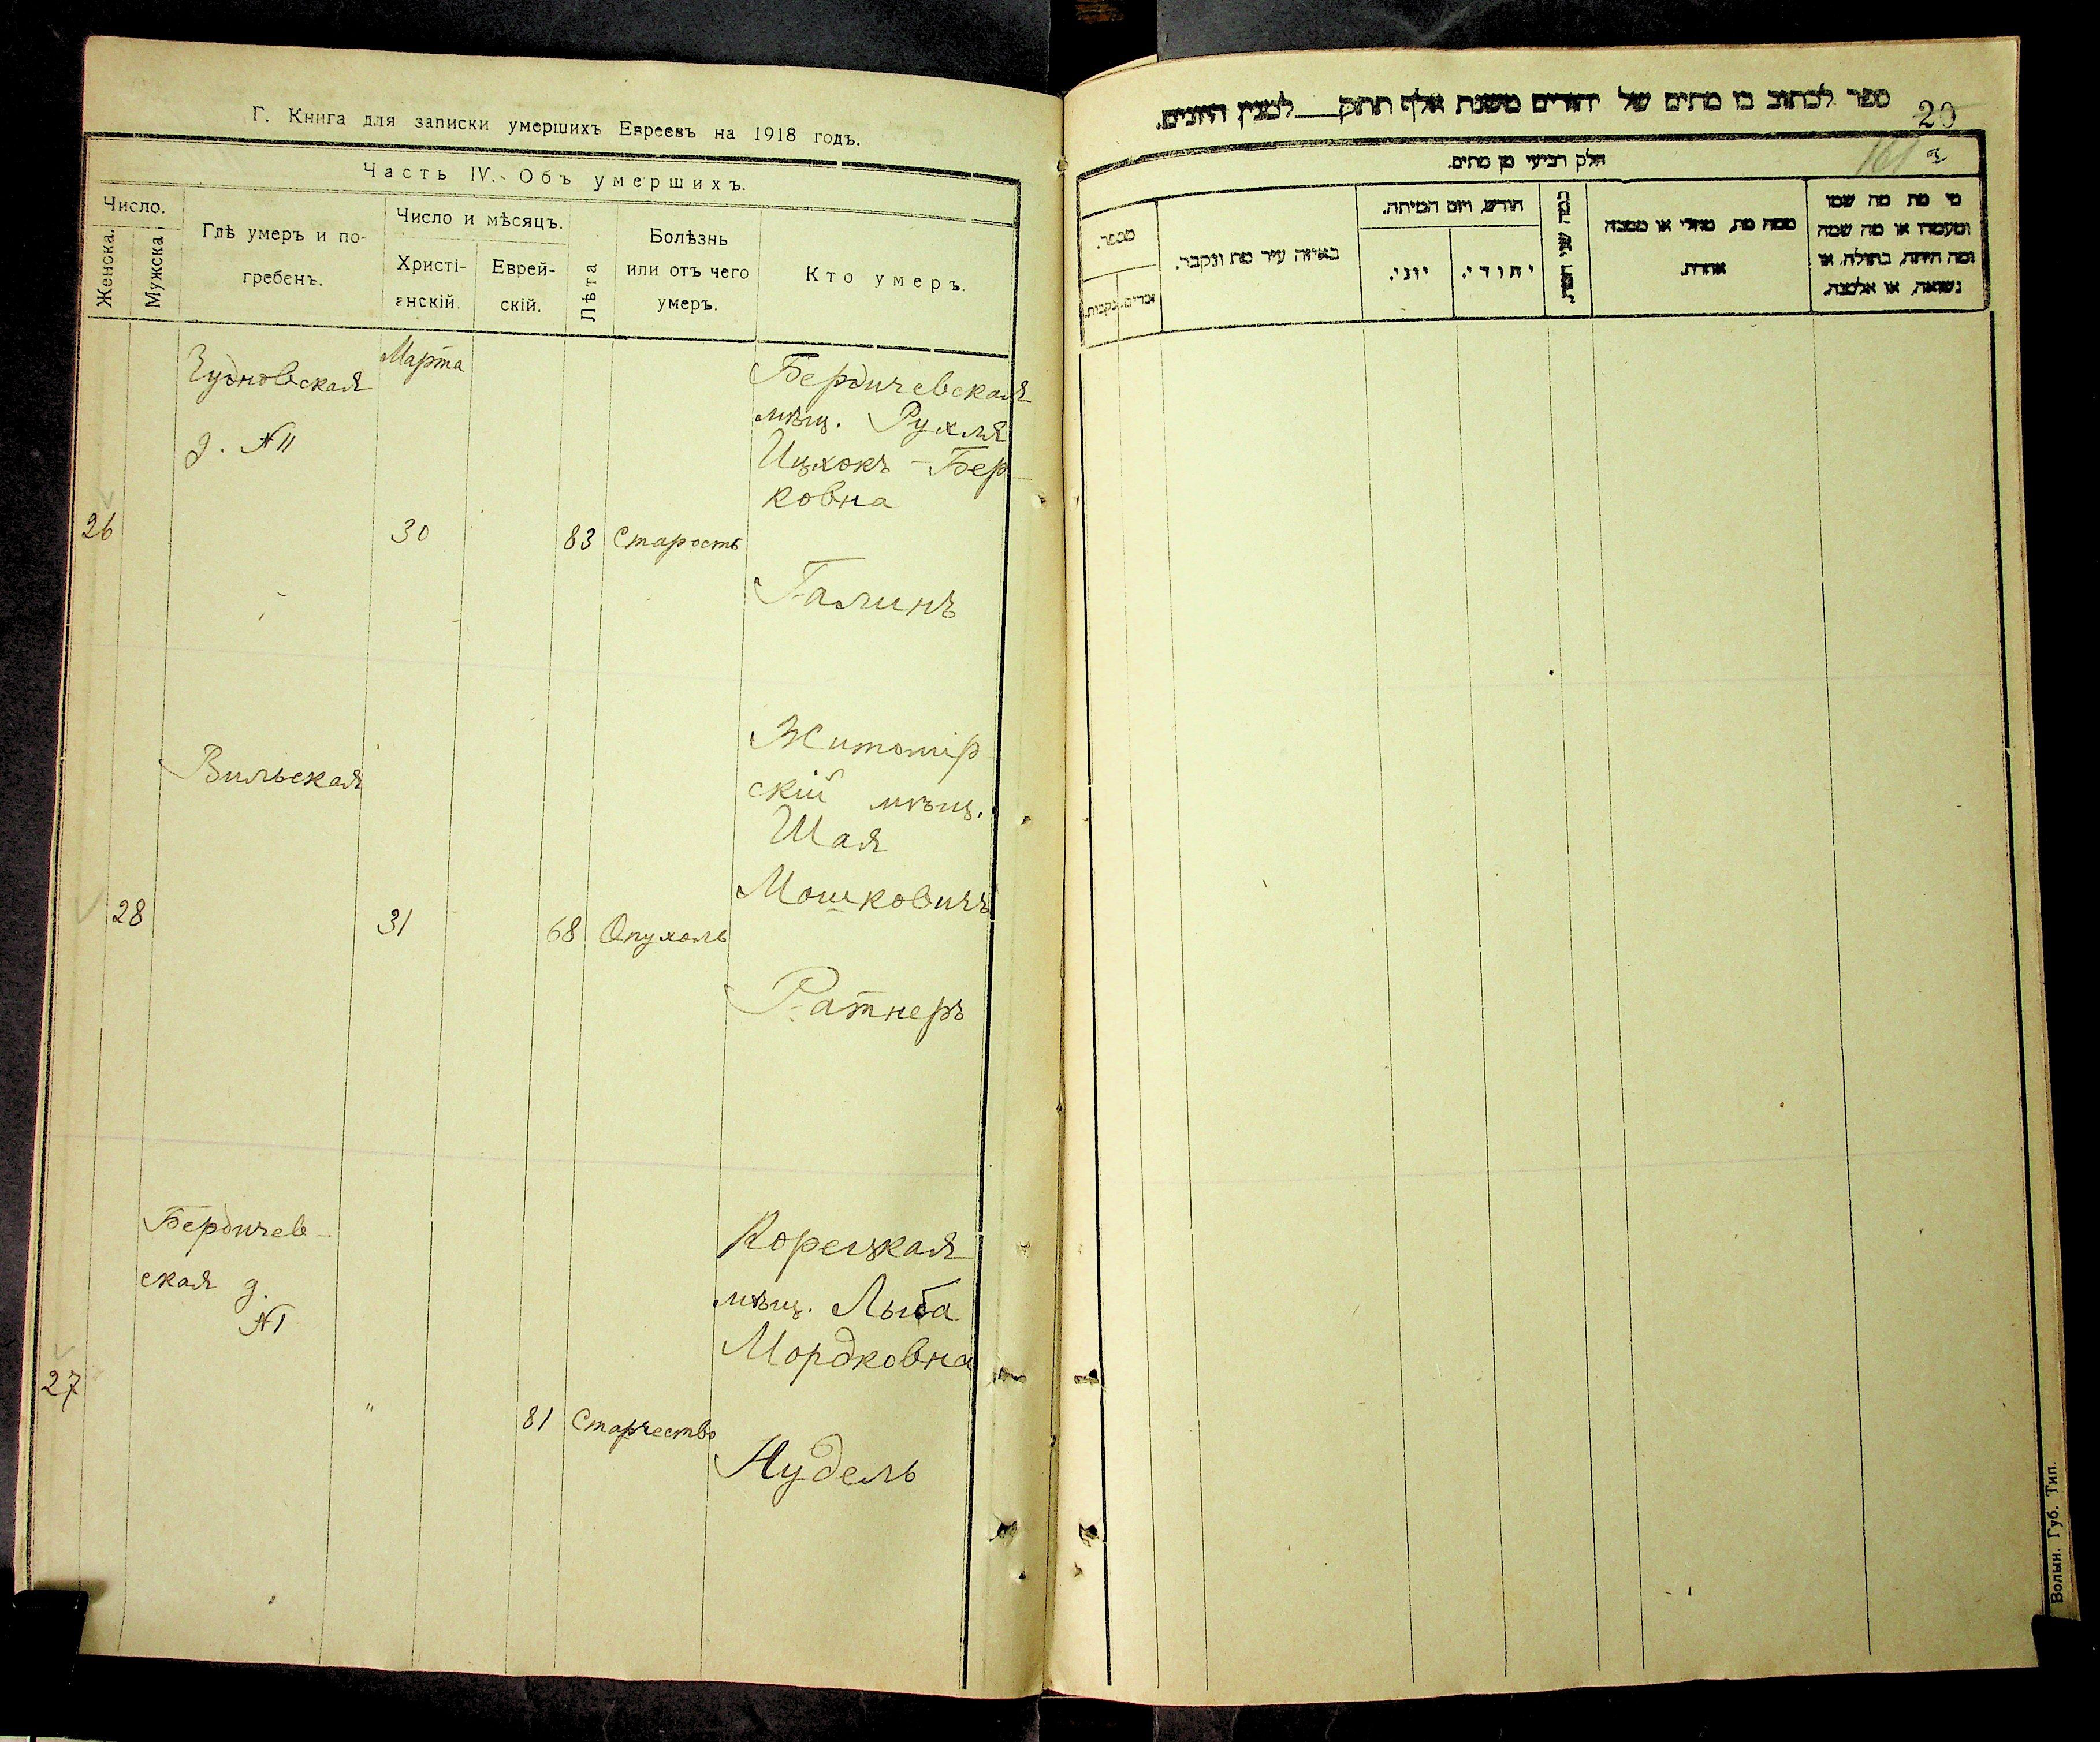 Г. Книга для записки умершихъ Евреевъ на 1918 годъ.
Часть IV. Объ умершихъ.
Число.
Женска.
Мужска
Гдѣ умеръ и по-
гребенъ.
Число и мѣсяцъ.
Христі-
анскій.
Еврей-
скій.
Лѣта
Болѣзнь
или отъ чего
умеръ.
Кто умеръ.
Чудновская
д. №11
Марта
Бердичевская
мѣщ. Рухля
Ицхокъ-Бер-
ковна
26
30
83
Старость
Галинъ
Вильская
Житомір
скій мѣщ.
Шая
Мошковичъ
28
31
68
Опухоль
Ратнеръ
Бердичев-
ская д.
№1
Корецкая
мѣщ. Лыба
Мордковна
27
"
81
Старчество
Нудель
ספר לכתוב בו מתים של יהודים משנת אלף תתק למנין היונים.
20
161
חלק רביעי מן מתים.
מי מת מה שמו
ומעמדו או מה שמה
ומה היתה, בתולה, או
נשואה, או אלמנה.
ממה מת, מחלי או מסבה
אחרת.
כמה שני המת.
חודש ויום המיתה.
יהודי.
יוני.
באיזה עיר מת ונקבר.
מספר.
זכרים.
נקבות.
Волын. Губ. Тип.